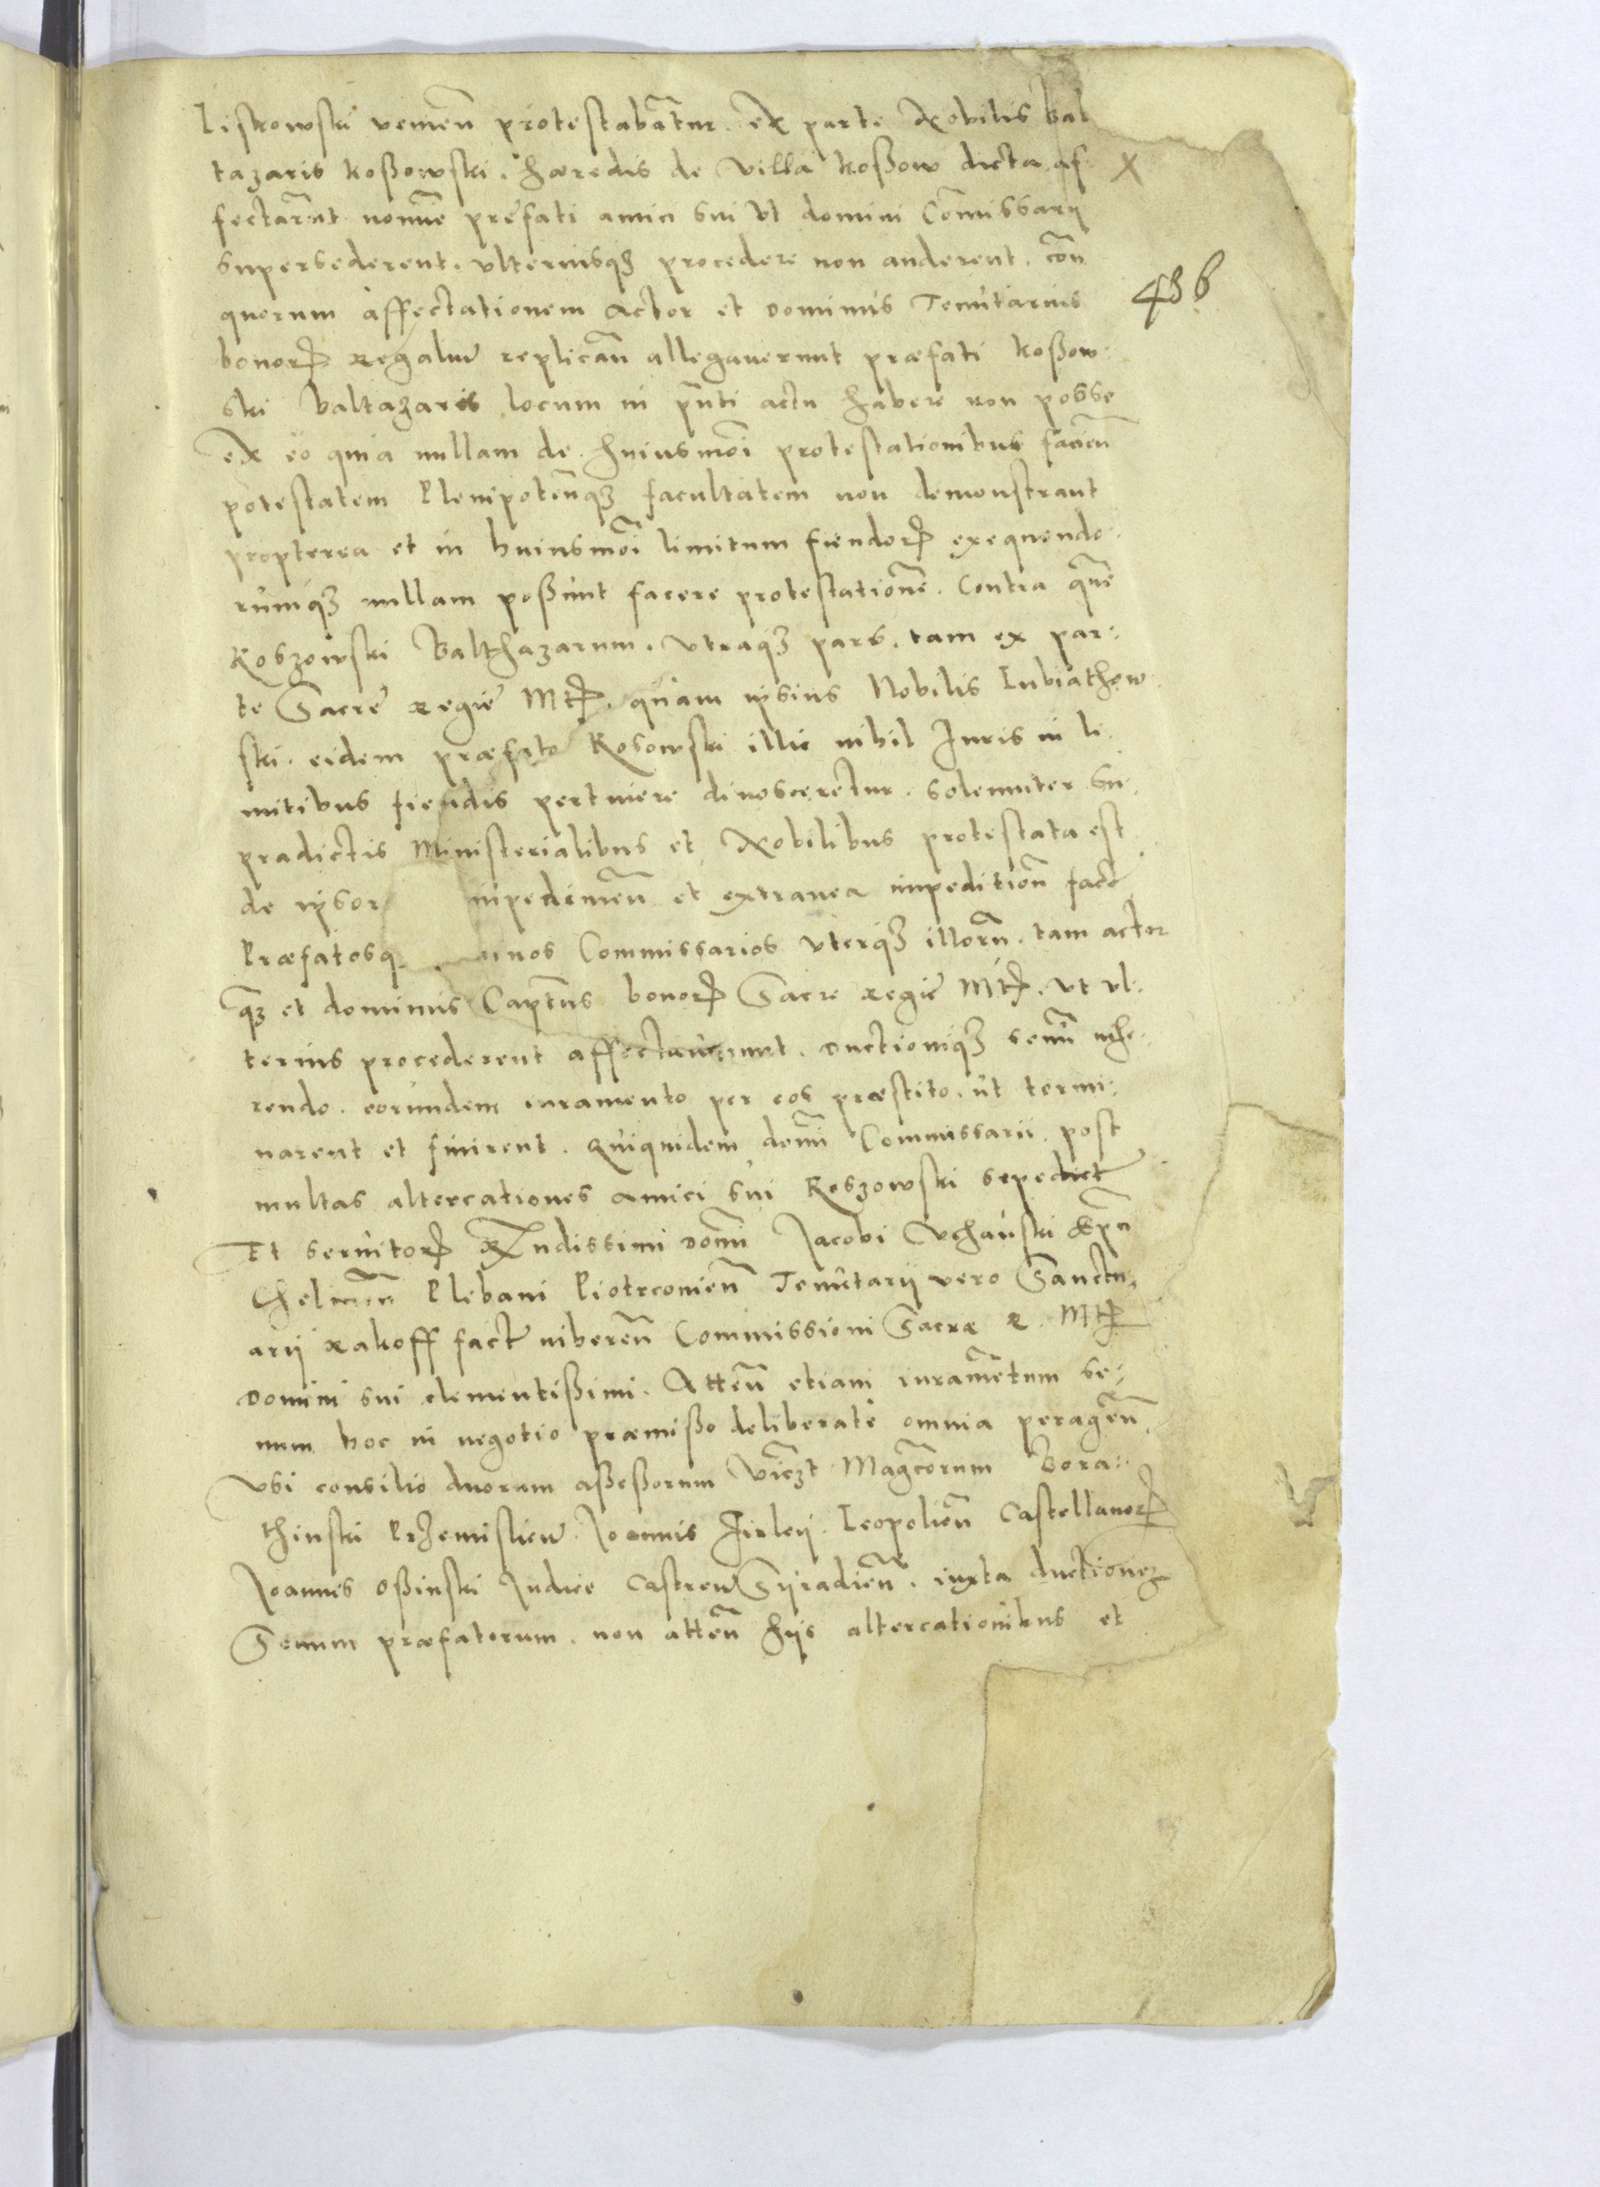 Liskowski venien protestabantur. Ex parte Nobilis Bal
tazaris Koßowski. hæredis de villa Koßow dicta. af
fectarunt nomine prefati amici sui Ut domini Commissarij
supersederent. ulteriusq3 procedere non auderent. con
quorum affectationem Actor et dominus Tenutarius
bonor regalium replican allegaverunt præfati Koßow-
ski Baltazaris locum in pnti actu habere non posse
Ex eo quia nullam de huiusmoi protestationibus facien
potestatem Plenipotenq3 facultatem non demonstrant
propterea et in huiusmoi limitum fiendor exequendo-
rumq3 nullam poßunt facere protestatione. Contra quem
Koszowski Balthazarum. Utraq3 pars. tam ex par-
te Sacre regie Mt. quam ipsius Nobilis Lubiathow
ski. eidem præfato Kosowski illic nihil Juris in li
mitibus fiendis pertinere dinosceretur. solemniter su-
pradictis Ministerialibus et Nobilibus protestata est
de ipsor inpedimen et extranea impedition facte
Præfatosq inos Commissarios uterq3 illorum. tam actor
q3 et dominus Captneus bonor Sacre regie Mt. ut ul-
terius procederent affectaverunt. ductioniq3 senu inhe-
rendo. eorundem iuramento per eos præstito. ut termi-
narent et finirent. Quiquidem domi Commissarii. post
multas altercationes amici sui Koszowski sepedict
Et servitor Rndissimi domi Jacobi Uchanski Epn
Chelmen Plebani Piotrconien Tenutarij vero Sanctu-
arij Rakoff fact inheren Commissioni Sacræ R. Mt
domini sui clementißimi. Atten etiam iuramentum se-
num hoc in negotio præmißo deliberate omnia peragen
Usi consilio duorum aßeßorum viczt Magcorum Bora-
thinski Przemislien. Joannis Firleij. Leopolien Castellanor
Joannes Oßinski Judice Castren Syradien. iuxta ductionez
Senum præfatorum. non atten hijs altercationibus et
X
486